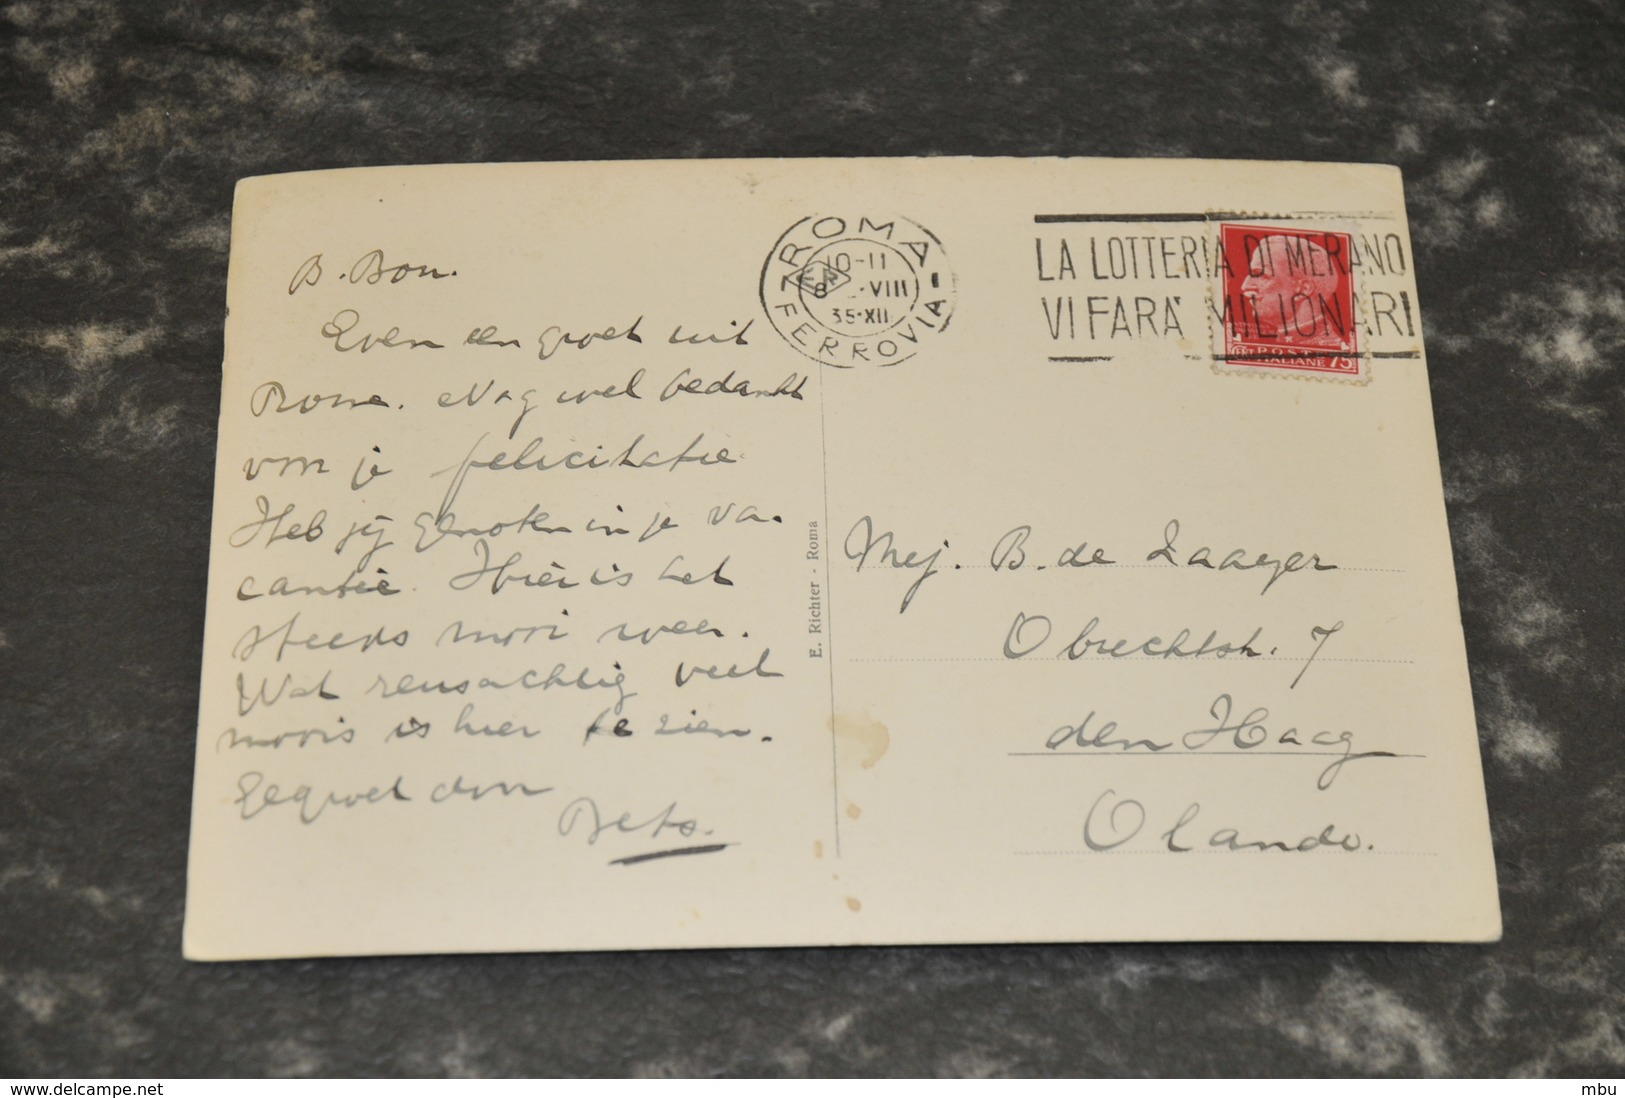 B. Bon.
Even een groet uit
Rome. Nog wel bedankt
voor je felicitatie.
Heb jij genoten in je va-
cantie. Hier is het
steeds mooi weer.
Wat reusachtig veel
moois is hier te zien.
Gegroet door
Bets.
ROMA
FERROVIA
10-11
8 - VIII
35·XII
LA LOTTERIA DI MERANO
VI FARÀ MILIONARI
POSTE
ITALIANE 75
E. Richter - Roma
Mej. B. de Zaayer
Obrechtstr. 7
den Haag
Olanda.
www.delcampe.net
mbu